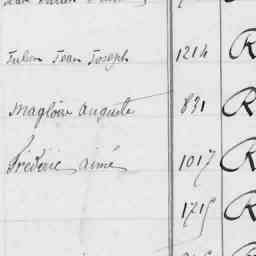 Jean Joseph 1214 R
Magloire Auguste 831 R
Frédéric aimé 1017 R
1715 R